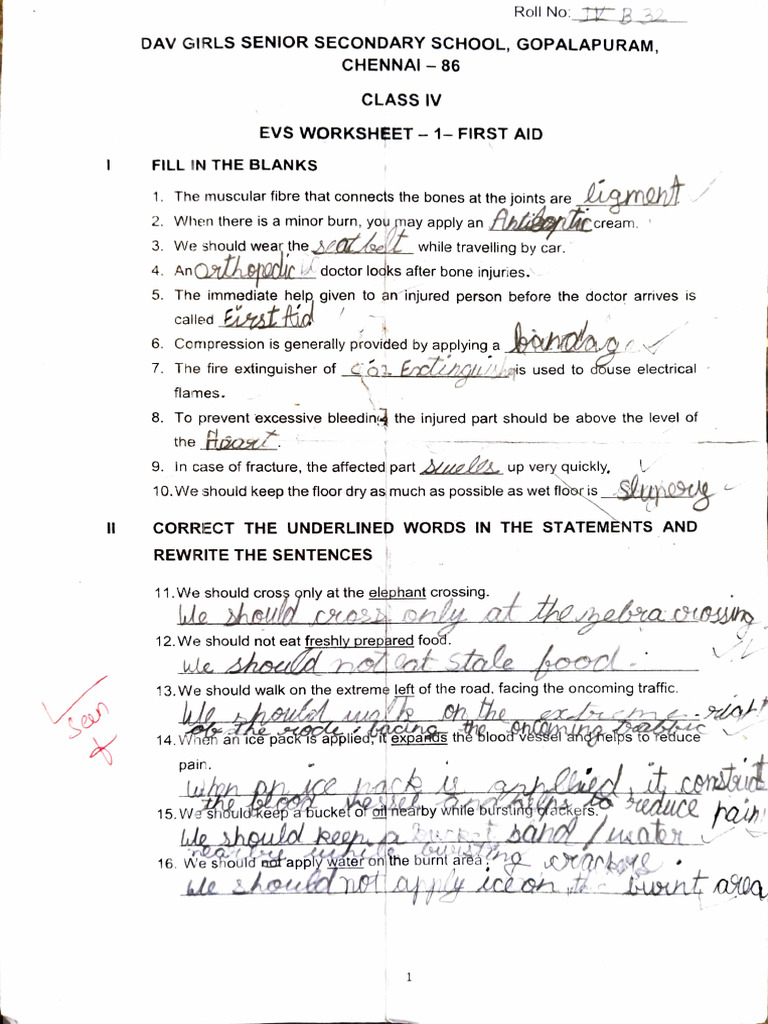 Roll No: IV B 32
DAV GIRLS SENIOR SECONDARY SCHOOL, GOPALAPURAM,
CHENNAI – 86
CLASS IV
EVS WORKSHEET – 1– FIRST AID
I FILL IN THE BLANKS
1. The muscular fibre that connects the bones at the joints are ligment
2. When there is a minor burn, you may apply an cream.
3. We should wear the seat belt while travelling by car.
4. An orthopedic doctor looks after bone injuries.
5. The immediate help given to an injured person before the doctor arrives is
called First Aid
6. Compression is generally provided by applying a bandag
7. The fire extinguisher of is used to douse electrical
flames.
8. To prevent excessive bleeding the injured part should be above the level of
the Heart.
9. In case of fracture, the affected part swells up very quickly.
10. We should keep the floor dry as much as possible as wet floor is
II CORRECT THE UNDERLINED WORDS IN THE STATEMENTS AND
REWRITE THE SENTENCES
11. We should cross only at the elephant crossing.
We should cross only at the zebra crossing
12. We should not eat freshly prepared food.
We should not eat stale food.
13. We should walk on the extreme left of the road, facing the oncoming traffic.
We should walk on the extreme right
of the rode, facing the oncoming traffic
14. When an ice pack is applied, it expands the blood vessel and helps to reduce
pain.
When an ice pack is appllied, it constrict
the blood vessel and helps to reduce pain
15. We should keep a bucket of oil nearby while bursting crackers.
We should keep a bucket sand / water
nearby while bursting
16. We should not apply water on the burnt area.
We should not apply ice on the burnt area
seen
1